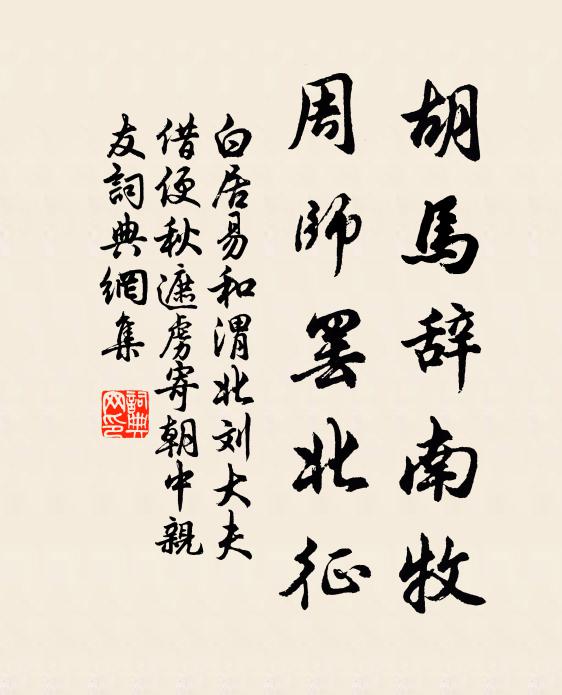 胡馬辞南牧
周師罢北征
白居易和渭北刘大夫
借便秋遮虏寄朝中親
友詞典網集
詞典网印